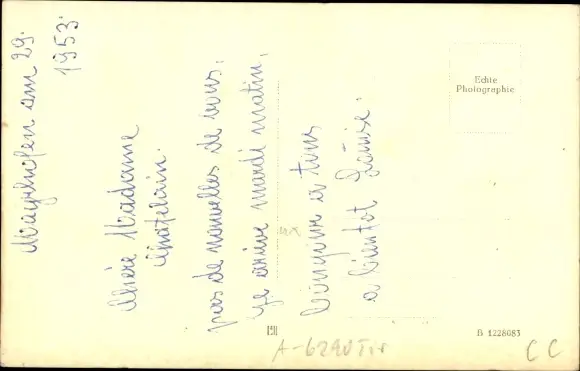 Mayrhofen am 29.
1953.
Chère Madame
Chatelain.
pas de nouvelles de vous,
je arrive mardi matin,
bonjour a tous
a bientot Louise.
Echte
Photographie
B 1228083
A-6290
CC